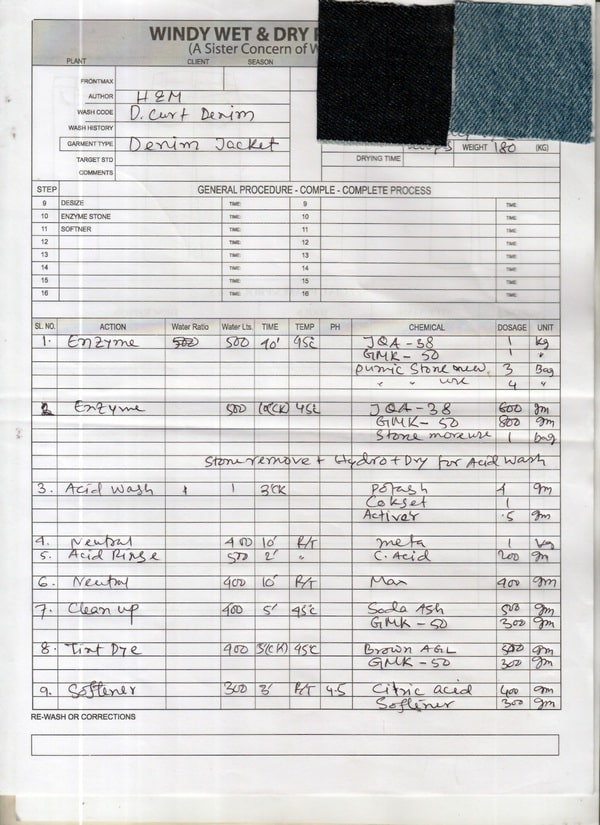 WINDY WET & DRY
(A Sister Concern of W
PLANT CLIENT SEASON
FRONTMAX
AUTHOR H&M
WASH CODE D. Curt Denim
WASH HISTORY
GARMENT TYPE Denim Jacket WEIGHT 180 (KG)
TARGET STD DRYING TIME
COMMENTS
STEP GENERAL PROCEDURE - COMPLE - COMPLETE PROCESS
9 DESIZE TIME: 9 TIME:
10 ENZYME STONE TIME: 10 TIME:
11 SOFTNER TIME: 11 TIME:
12 TIME: 12 TIME:
13 TIME: 13 TIME:
14 TIME: 14 TIME:
15 TIME: 15 TIME:
16 TIME: 16 TIME:
SL. NO. ACTION Water Ratio Water Lts. TIME TEMP PH CHEMICAL DOSAGE UNIT
1. Enzyme 500 500 10' 45c JQA-38 1 kg
GMK-50 1 "
Pumic Stone new 3 Bag
" " use 4 "
2 Enzyme 500 45c JQA-38 600 gm
GMK-50 800 gm
Stone 1 bag
Stone remove + Hydro + Dry for Acid Wash
3. Acid Wash 1 3'CK Potash 4 gm
1
Activer .5 gm
4. Neutral 400 10' R/T meta 1 kg
5. Acid Rinse 500 2' " C. Acid 200 gm
6. Neutral 400 10' R/T 400 gm
7. Clean up 400 5' 45c Soda Ash 500 gm
GMK-50 300 gm
8. Tint Dye 400 5'(CK) 45c Brown AGL 500 gm
GMK-50 300 gm
9. Softener 300 3' R/T 4.5 Citric acid 400 gm
Softiner 300 gm
RE-WASH OR CORRECTIONS